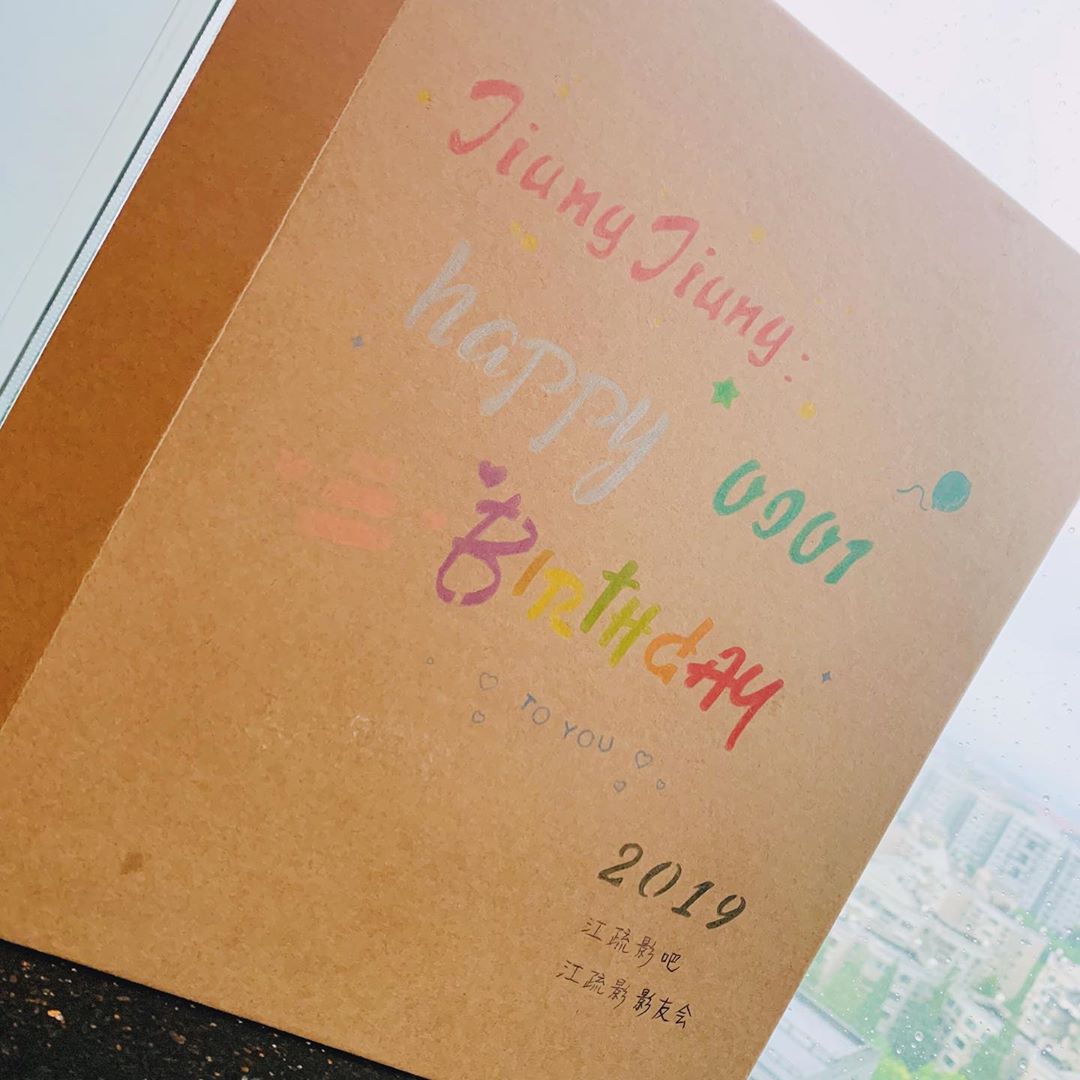 Jiung Jiung:
happy
0901
BIRTHdAY
TO YOU
2019
江疏影吧
江疏影影友会